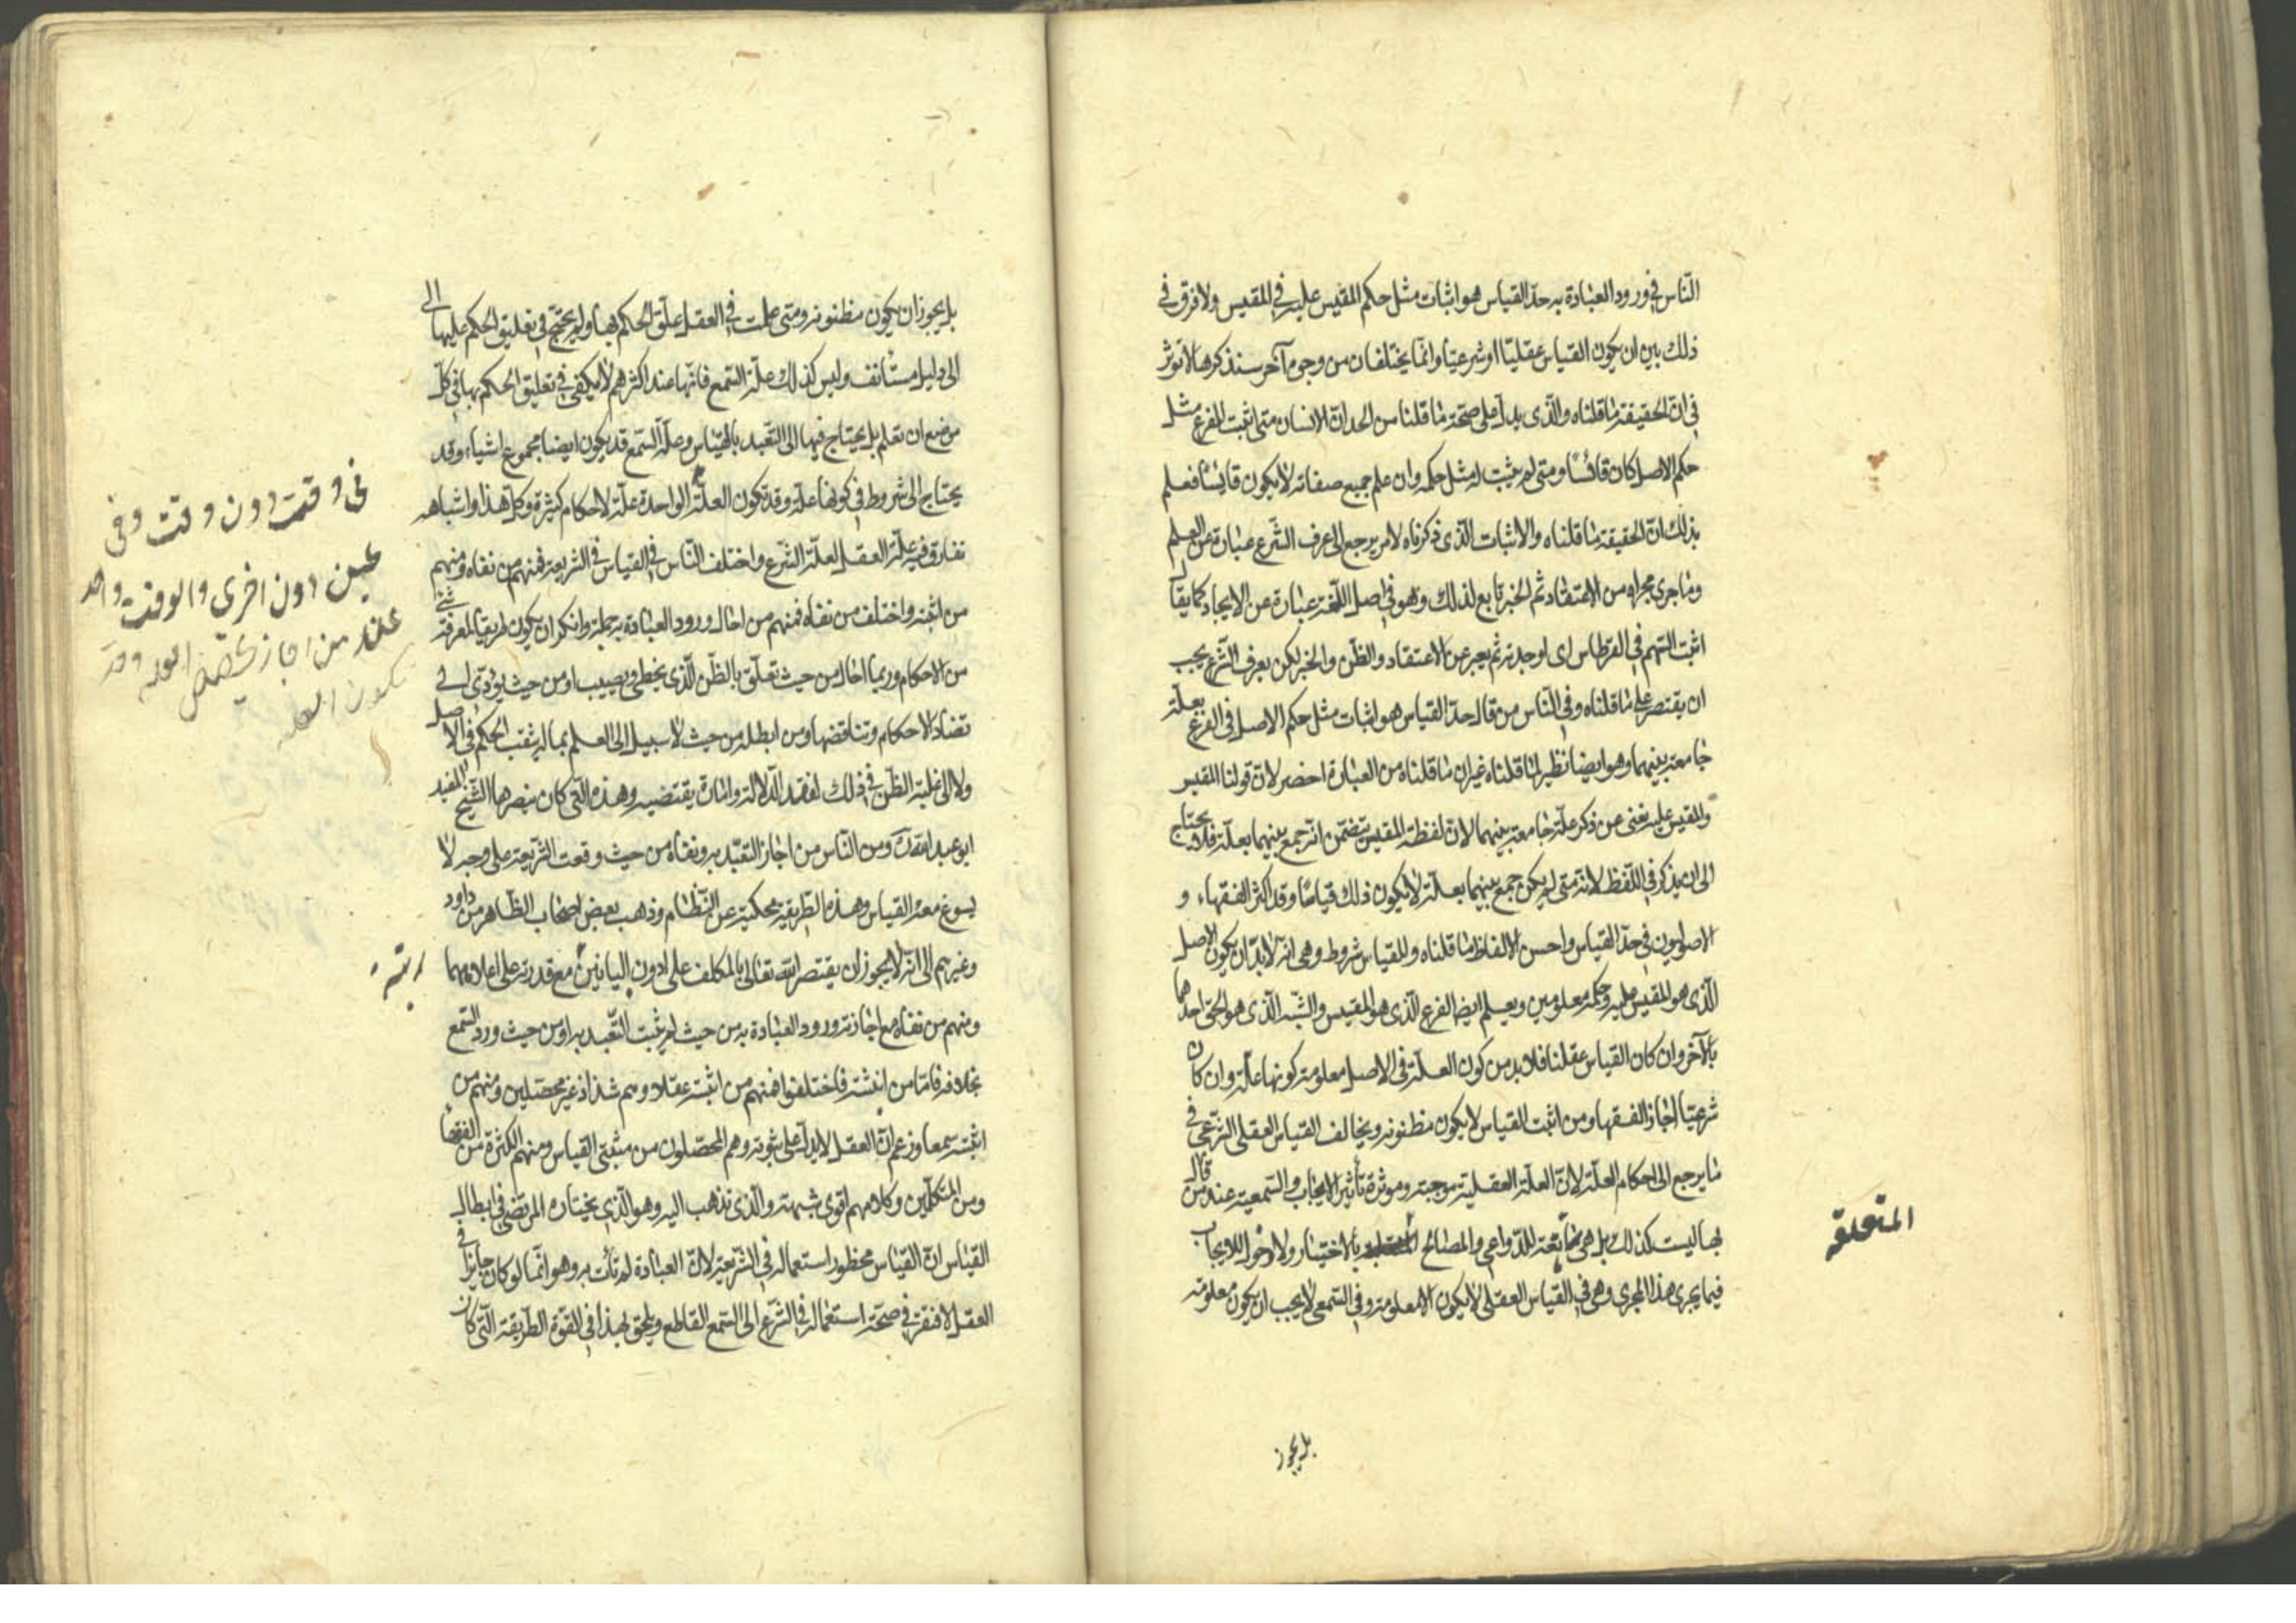 النّاس في ورود العبادة به حدّ القياس هو اثبات مثل حكم المقيس عليه في المقيس ولا فرق في
ذلك بين ان يكون القياس عقليّا او شرعيّا وانّما يختلفان من وجوه آخر سنذكرها لا تؤثر
في انّ الحقيقة ما قلناه والّذي يدلّ على صحّة ما قلنا من الحد انّ الانسان متى اثبت للفرع مثل
حكم الاصل كان قائسًا ومتى لم يثبت له مثل حكمه وان علم جميع صفاته لا يكون قايسًا فعلم
بذلك انّ الحقيقة ما قلناه والاثبات الّذي ذكرناه لامر يرجع الى عرف الشّرع عبارة عن العلم
وما جرى مجراه من الاعتقاد ثم الخبر تابع لذلك وهو في اصل اللّغة عبارة عن الايجاد كما يقال
اثبت السّهم في القرطاس اى اوجدته ثم يعبر عن الاعتقاد والظّن والخبر لكن بعرف الشّرع يجب
ان يقتصر على ما قلناه وفي النّاس من قال حدّ القياس هو اثبات مثل حكم الاصل في الفرع بعلّة
جامعة بينهما وهو ايضا نظير لما قلناه غير ان ما قلناه من العبارة اخصر لانّ قولنا المقيس
والمقيس عليه يغنى عن ذكر علّة جامعة بينهما لانّ لفظة المقيس يتضمّن انّه جمع بينهما بعلّة فلا يحتاج
الى ان يذكر في اللّفظ لانّه متى لم يكن جمع بينهما بعلّة لا يكون ذلك قياسًا وقد اكثر الفقهاء و
الاصوليون في حدّ القياس واحسن الالفاظ ما قلناه وللقياس شروط وهي انّه لا بدّ ان يكون الاصل
الّذي هو المقيس عليه وحكمه معلومين ويعلم ايضا الفرع الّذي هو المقيس والشّبه الّذي هو الحق احدهما
بالآخر وان كان القياس عقلنا فلا بد من كون العلّة في الاصل معلومة كونها علّة وان كان
شرعيّا اجاز الفقهاء ومن اثبت القياس لا يكون مظنونه ويخالف القياس العقلى الشّرعى في
ما يرجع الى احكام العلّة لانّ العلّة العقليّة موجبة وموثرة تأثير الايجاب والسّمعيّة عند من قال
بها ليست كذلك بل هي تابعة للدّواعى والمصالح بالاختيار ولا دخول للايجاب
المتعلقه
فيما يجرى هذا المجرى وهي في القياس العقلى لا يكون الا معلومة وفي السّمعى لا يجب ان يكون معلومة
بل يجوز
بل يجوز ان يكون مظنونه ومتى علمت في العقل علّق الحكم بها ولم يحتج في تعليق الحكم عليها الى
الى دليل مستأنف وليس كذلك علّة السّمع فانّها عند اكثرهم لا يكفى في تعليق الحكم بها في كلّ
موضع ان تعلم بل يحتاج فيها الى التّعبد بالقياس وعلّة السّمع قد يكون ايضا مجموع اشياء وقد
يحتاج الى شروط في كونها علّة وقد تكون العلّة الواحدة علّة لاحكام كثيرة وكلّ هذا واشباهه
في وقت دون وقت وفي
عين دون اخرى والوقت واحد
عند من اجاز تخصيص العلة وقد
تكون العلة
تفارق فيه علّة العقل لعلّة الشّرع واختلف النّاس في القياس في الشريعة فمنهم من نفاه ومنهم
من اثبته واختلف من نفاه فمنهم من احال ورود العبادة به جملة وانكر ان يكون طريقا لمعرفة شئ
من الاحكام وربما احال من حيث تعلّق بالظّن الّذي يخطى ويصيب او من حيث يؤدّى الى
تضاد الاحكام وتناقضها ومن ابطله من حيث لا سبيل الى العلم بما له يثبت الحكم في الاصل
ولا الى غلبة الظّن في ذلك لفقد الدّلالة وامارة يقتضيه وهذه الّتي كان ينصرها الشّيخ المفيد
ابو عبد الله ره ومن النّاس من اجاز التعبّد به ونفاه من حيث وقعت الشّريعة على وجه لا
يسوغ معه القياس وهذه الطريقة محكية عن النّظام وذهب بعض اصحاب الظّاهر من داود
وغيرهم الى انّه لا يجوز ان يقتصر الله تعالى بالمكلف على ادون البيانين مع قدرته على اعلاهما
رتبة
ومنهم من نفاه مع اجازته ورود العبادة به من حيث لم يثبت التّعبد به او من حيث ورد السّمع
بخلافه فامّا من اثبته فاختلفوا فمنهم من اثبته عقلا وهم شذاذ غير محصّلين ومنهم من
اثبته سمعا وزعم انّ العقل لا يدلّ على ثبوته وهم المحصّلون من مثبتى القياس ومنهم الكثرة من الفقهاء
ومن المتكلّمين وكلامهم اقوى شبهة والّذي نذهب اليه وهو الّذي يختاره المرتضى في ابطال
القياس انّ القياس محظور استعماله في الشّريعة لانّ العبادة لم تأت به وهو انّما لو كان جايزا في
العقل لافتقر في صحّة استعماله في الشّرع الى السّمع القاطع ويلحق بهذا في القوّة الطّريقة الّتي كان